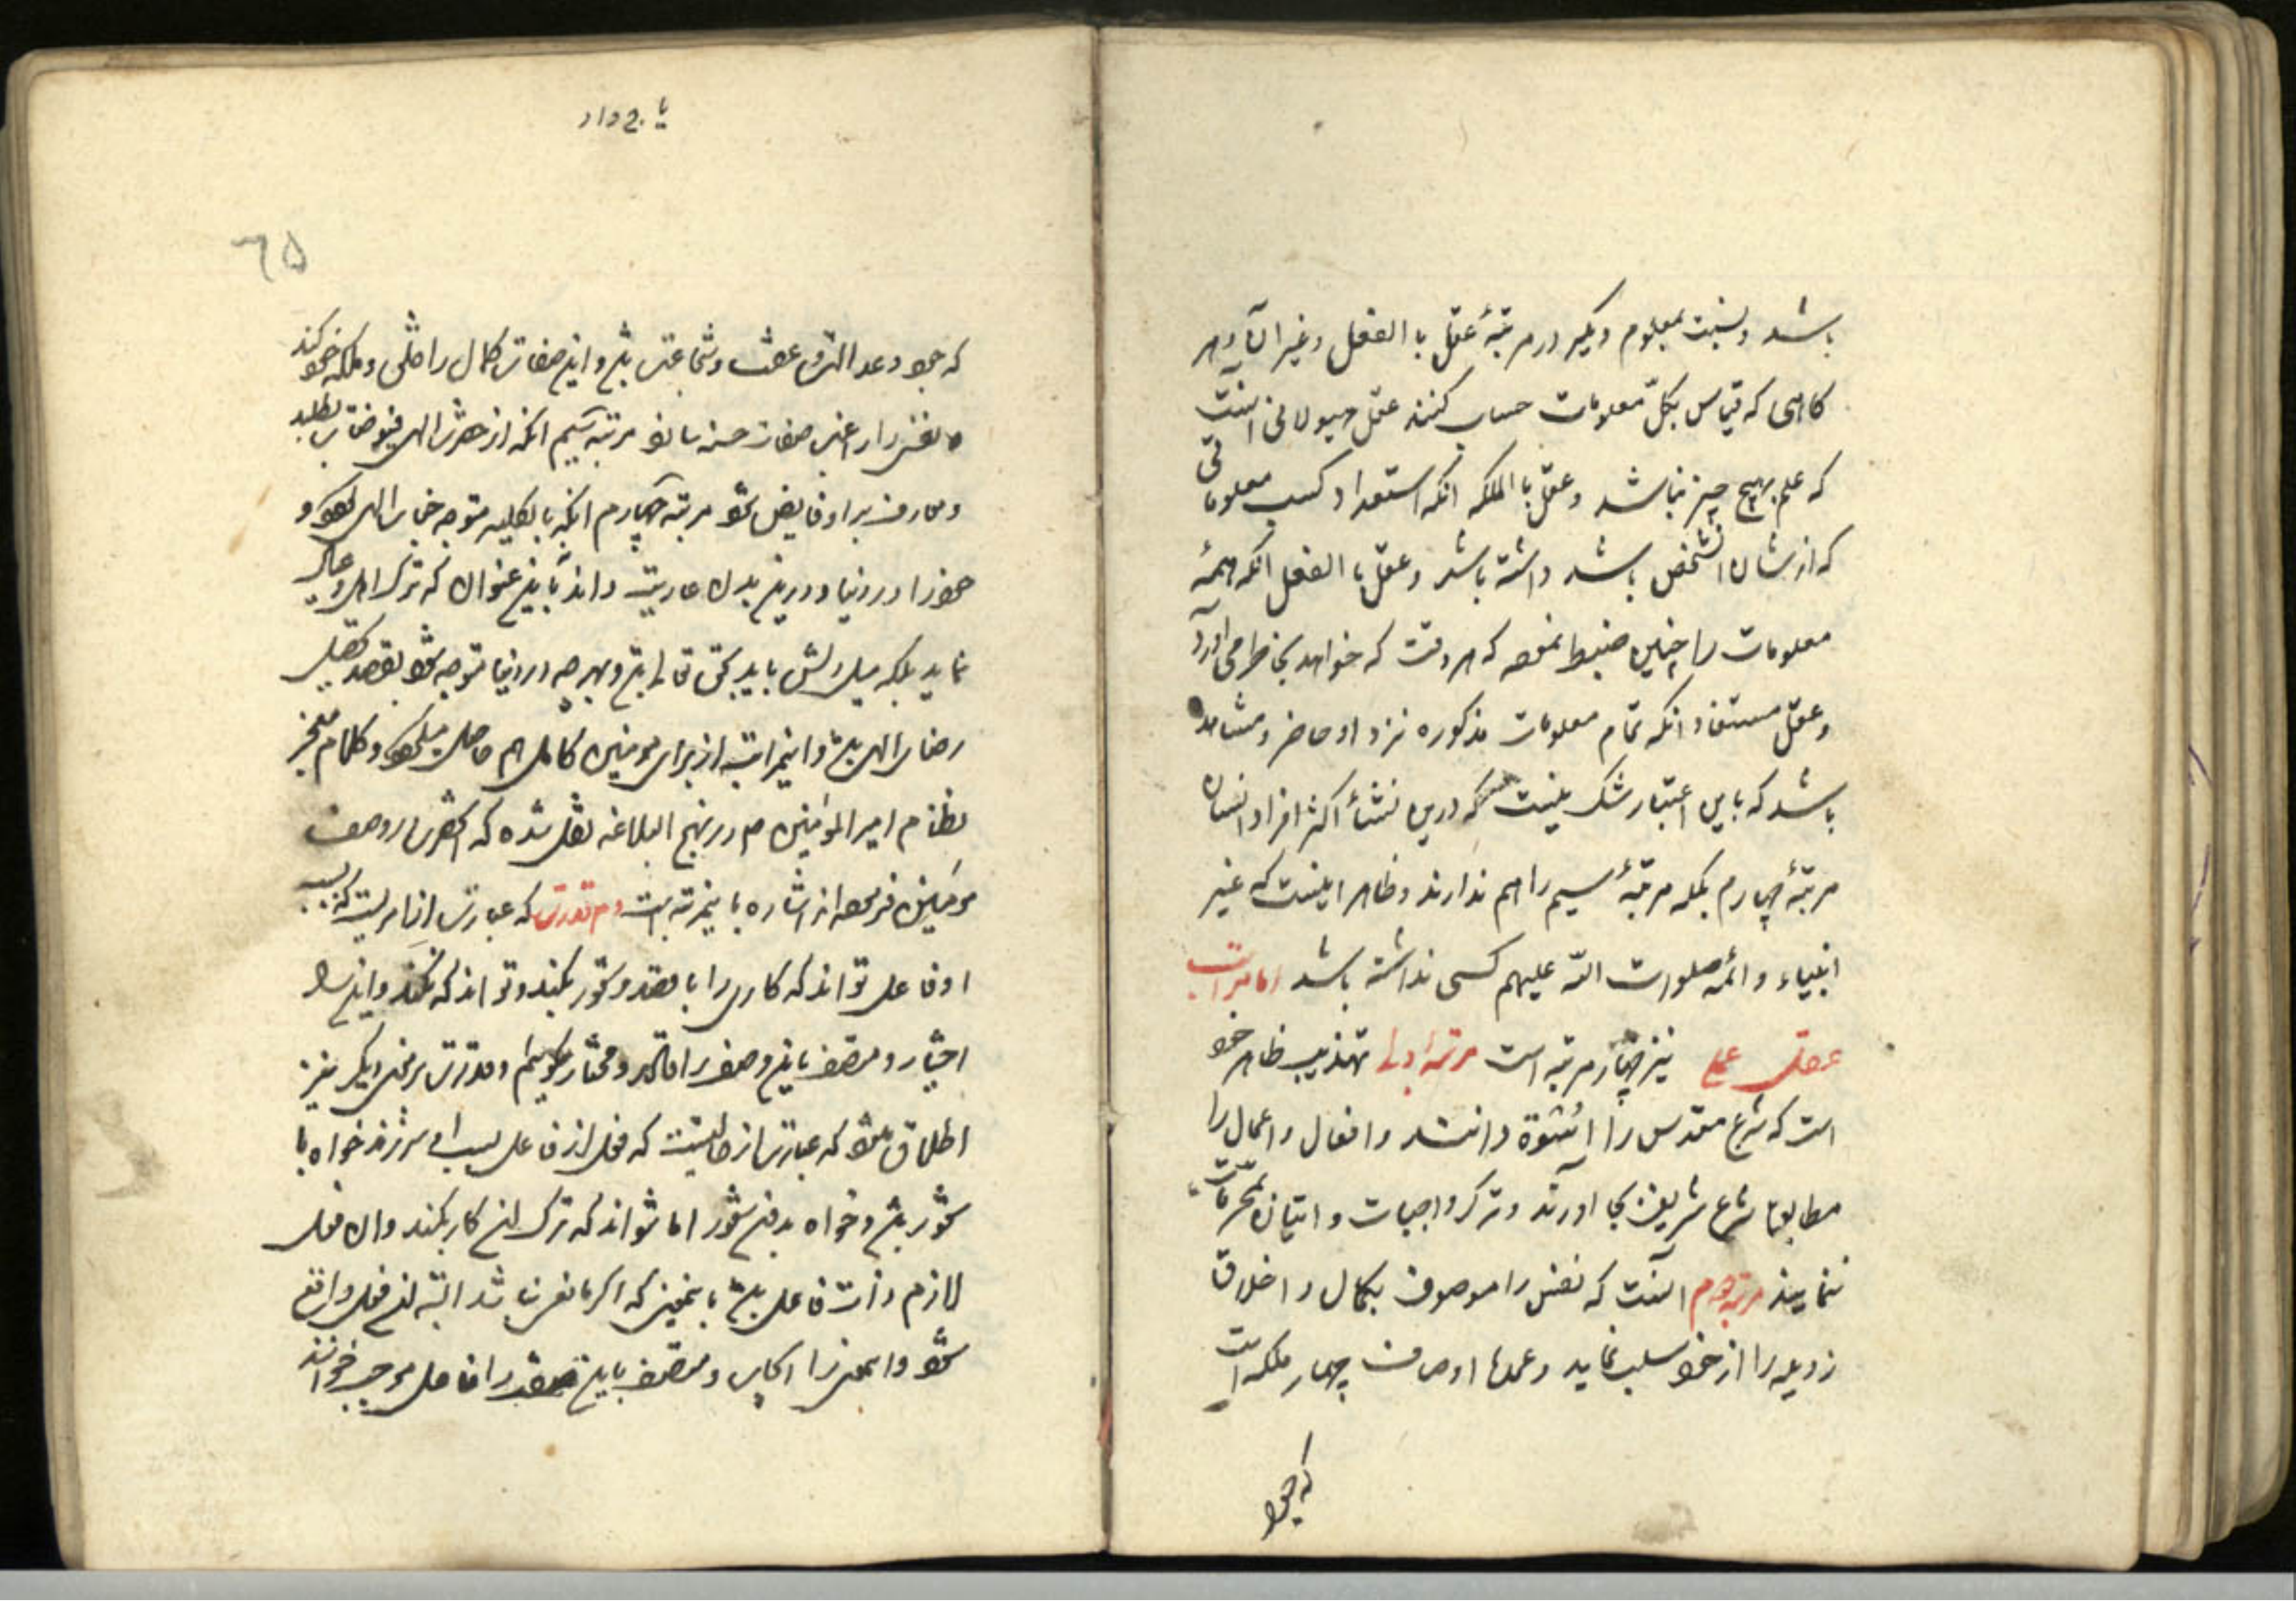 باشد و نسبت بمعلوم دیگر در مرتبهٔ عقل با الفعل و غیر آن و هر
کاهی که قیاس بکل معلومات حساب کنند عقل هیولانی آنست
که علم بهیچ چیز نباشد و عقل با الملکه آنکه استعداد کسب معلوماتی
که از شان آنشخص باشد داشته باشد و عقل با الفعل آنکه همهٔ
معلومات را چنین ضبط نموده که هر وقت که خواهد بخاطر می آورد
و عقل مستفاد آنکه تمام معلومات مذکوره نزد او حاضر و مشاهد
باشد که باین اعتبار شک نیست که درین نشأ اکثر افراد انسان
مرتبهٔ چهارم بلکه مرتبهٔ سیم را هم ندارند و ظاهر اینست که غیر
انبیاء و ائمه صلوات الله علیهم کسی نداشته باشد اما مراتب
عقل عملی نیز چهار مرتبه است مرتبه اولی تهذیب ظاهر خود
است که شرع مقدس را اسوة دانند و افعال و اعمال را
مطابق شرع شریف بجا آورند و ترک واجبات و اتیان بمحرمات
ننمایند مرتبه دوم آنست که نفس را موصوف بکمال و اخلاق
رذیله را از خود سلب نماید و عمدهٔ اوصاف چهار ملکه است
که جود
یا ج داد
٦۵
که جود و عدالت و عفت و شجاعت باشد و این صفات کمال را خلق و ملکه خود کند
نفس را صفات حسنه مرتبه سیم آنکه از حضرت الهی فیوضات بطلبد
و معارف بر او فایض شود مرتبه چهارم آنکه بالکلیه متوجه جناب الهی شود و
خود را در دنیا و درین بدن عاریت داند نه باین عنوان که ترک اهل و عیال
نماید بلکه میل دلش باید بحق تعالی باشد و بهر چه در دنیا متوجه شود بقصد تحصیل
رضای الهی باشد و اینمراتب از برای مؤمنین کامل هم حاصل میشود و کلام معجز
نظام امیر المؤمنین ع در نهج البلاغه نقل شده که حضرت در وصف
مؤمنین فرموده اند اشاره باینمرتبه است دوم قدرت که عبارت از امریست که بسبب
او فاعل تواند که کاری را با قصد و شعور بکند و تواند که نکند و این را
اختیار و متصف باین وصف را قادر و مختار گوییم و قدرت بر معنی دیگر نیز
اطلاق شود که عبارت از حالتیست که فعل از فاعل بسبب او سر زند خواه با
شعور باشد و خواه بدون شعور اما نتواند که ترک این کار بکند و آن فعل
لازم ذات فاعل باشد باینمعنی که اگر مانعی نباشد البته این فعل واقع
شود و اینمعنی را ایجاب و متصف باین صفت را فاعل موجب خوانند